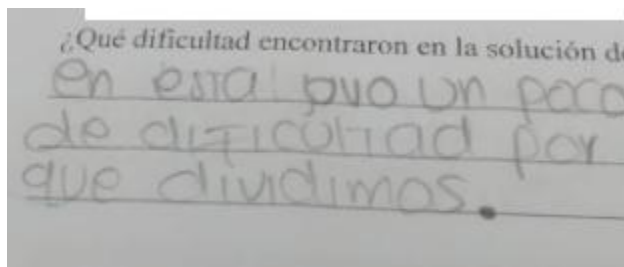 ¿Qué dificultad encontraron en la solución d
en esta ovo un poco
de dificultad por
que dividimos.